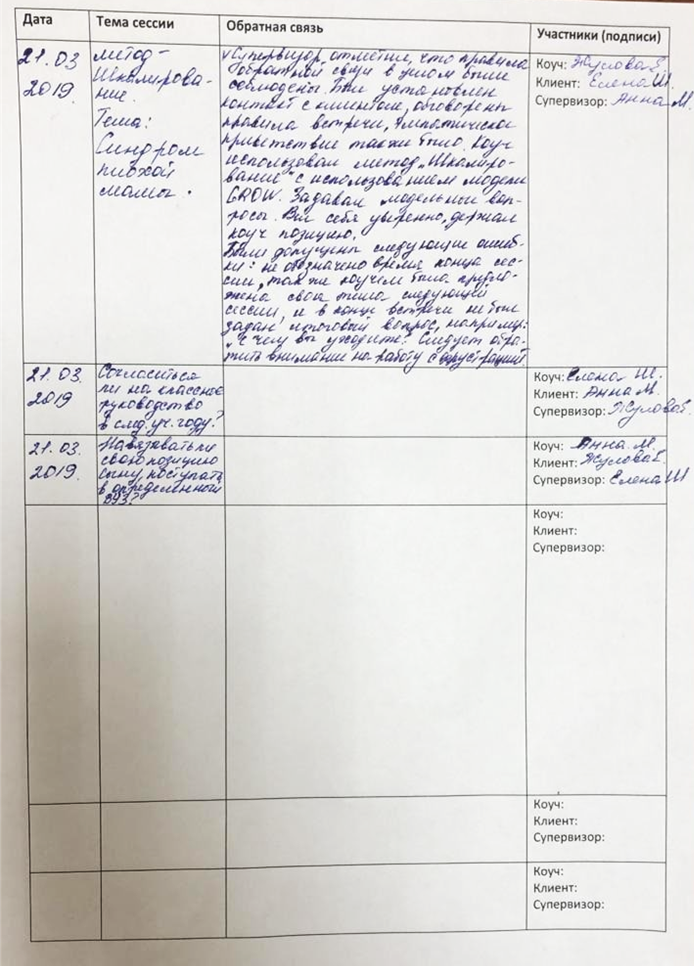 Дата
Тема сессии
Обратная связь
Участники (подписи)
21.03
2019.
метод-
Шкалирова-
ние.
Тема:
Синдром
плохой
мамы.
Супервизор, отметил, что правила
обратной связи в целом были
соблюдены. Был установлен
контакт с клиентом, оговорены
правила встречи, эмпатическое
приветствие также было. Коуч
использовал метод „Шкалиро-
вание" с использованием модели
GROW. Задавал модельные воп-
росы. Вёл себя уверенно, держал
коуч позицию.
Были допущены следующие ошиб-
ки: не обозначено время конца сес-
сии, так же коучем была предло-
жена своя тема следующей
сессии, и в конце встречи не был
задан итоговый вопрос, например:
„С чем вы уходите? Следует обра-
тить внимание на работу с фрустрацией.
Коуч: Жулова Е.
Клиент: Елена Ш.
Супервизор: Анна М.
21.03.
2019
Согласиться
ли на классное
руководство
в след. уч. году?
Коуч: Елена Ш.
Клиент: Анна М.
Супервизор: Жулова Е.
21.03.
2019.
Навязывать ли
свою позицию
сыну, поступать
в определенный
ВУЗ?
Коуч: Анна М.
Клиент: Жулова Е.
Супервизор: Елена Ш
Коуч:
Клиент:
Супервизор:
Коуч:
Клиент:
Супервизор:
Коуч:
Клиент:
Супервизор: